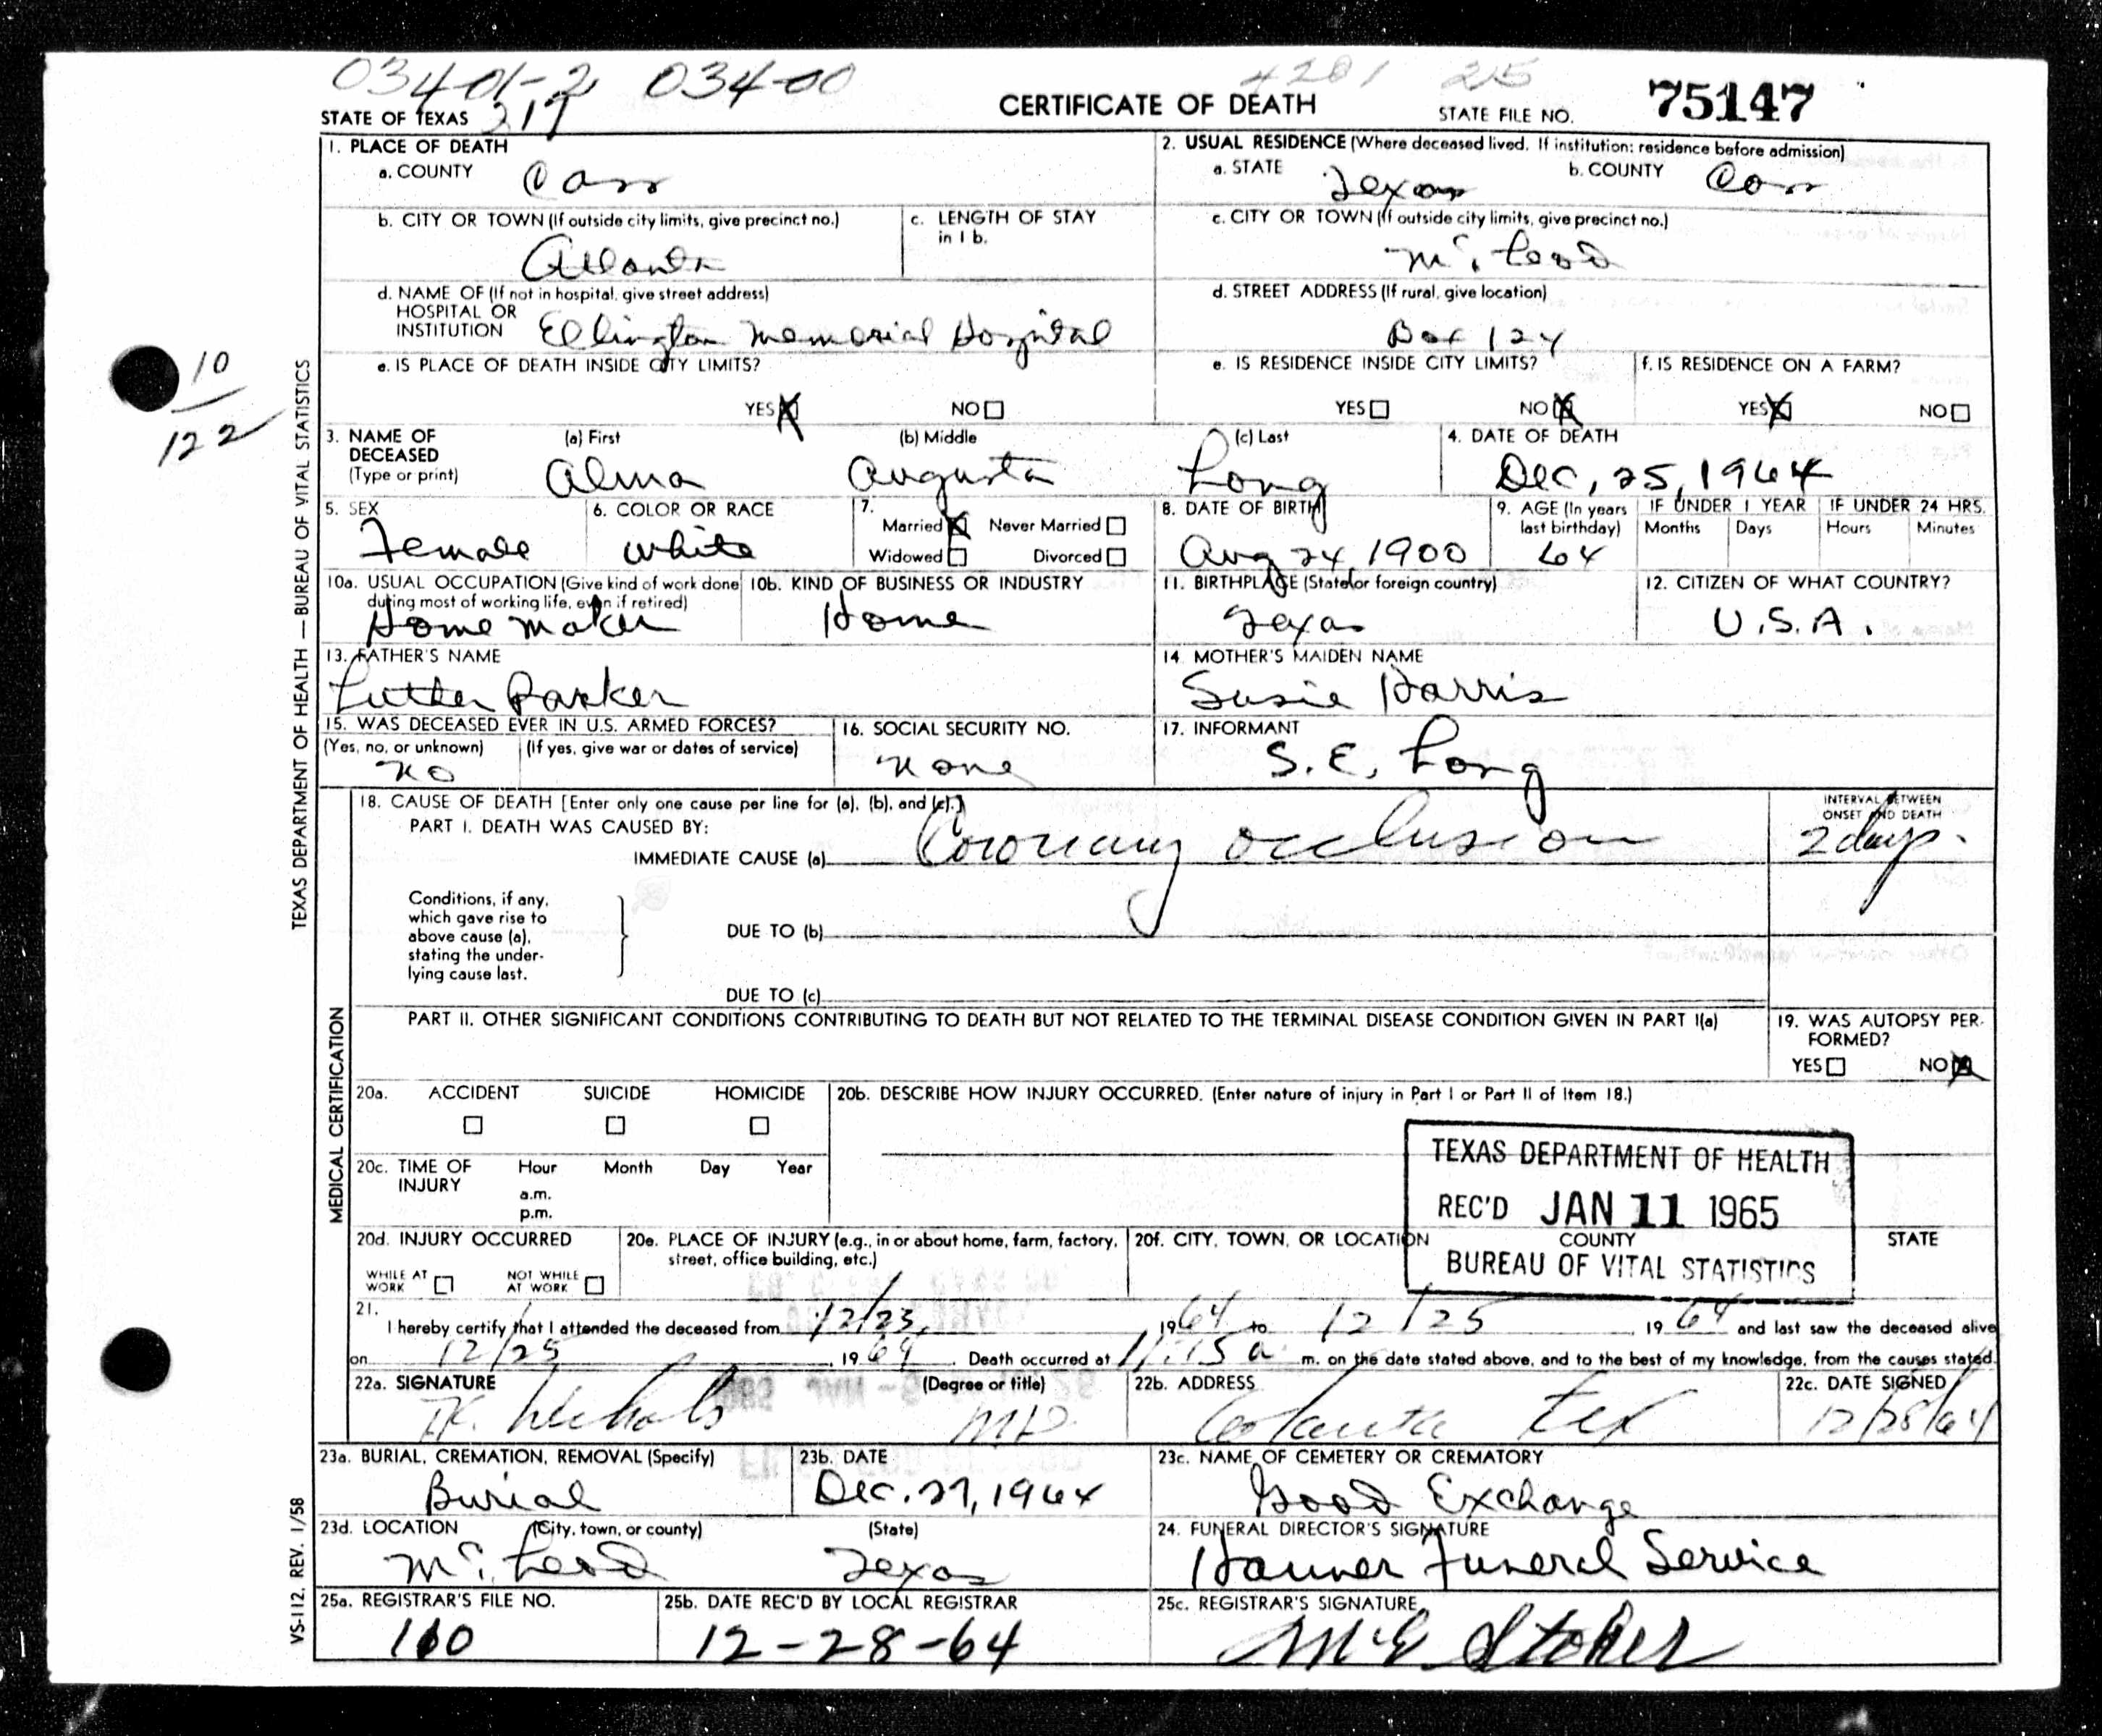 03401-2 03400 4201 215
STATE OF TEXAS 217 CERTIFICATE OF DEATH STATE FILE NO. 75147
1. PLACE OF DEATH 2. USUAL RESIDENCE (Where deceased lived. If institution: residence before admission)
a. COUNTY Cass a. STATE Texas b. COUNTY Cass
b. CITY OR TOWN (If outside city limits, give precinct no.) c. LENGTH OF STAY in 1 b. c. CITY OR TOWN (If outside city limits, give precinct no.)
Atlanta Mc. Leod
d. NAME OF (If not in hospital, give street address) d. STREET ADDRESS (If rural, give location)
HOSPITAL OR
INSTITUTION Ellington Memorial Hospital Box 124
e. IS PLACE OF DEATH INSIDE CITY LIMITS? e. IS RESIDENCE INSIDE CITY LIMITS? f. IS RESIDENCE ON A FARM?
YES X NO YES NO X YES X NO
10
122
3. NAME OF DECEASED (Type or print) (a) First (b) Middle (c) Last 4. DATE OF DEATH
Alma Augusta Long Dec, 25, 1964
5. SEX 6. COLOR OR RACE 7. Married X Never Married 8. DATE OF BIRTH 9. AGE (In years last birthday) IF UNDER 1 YEAR IF UNDER 24 HRS.
Months Days Hours Minutes
Female White Widowed Divorced Aug 24, 1900 64
10a. USUAL OCCUPATION (Give kind of work done during most of working life, even if retired) 10b. KIND OF BUSINESS OR INDUSTRY 11. BIRTHPLACE (State or foreign country) 12. CITIZEN OF WHAT COUNTRY?
Home Maker Home Texas U.S.A.
13. FATHER'S NAME 14. MOTHER'S MAIDEN NAME
Luther Parker Susie Harris
15. WAS DECEASED EVER IN U.S. ARMED FORCES? 16. SOCIAL SECURITY NO. 17. INFORMANT
(Yes, no, or unknown) (If yes, give war or dates of service)
No None S. E. Long
18. CAUSE OF DEATH [Enter only one cause per line for (a), (b), and (c).] INTERVAL BETWEEN ONSET AND DEATH
PART I. DEATH WAS CAUSED BY:
IMMEDIATE CAUSE (a) Coronary occlusion 2 days.
Conditions, if any, which gave rise to above cause (a), stating the under-lying cause last.
DUE TO (b)
DUE TO (c)
PART II. OTHER SIGNIFICANT CONDITIONS CONTRIBUTING TO DEATH BUT NOT RELATED TO THE TERMINAL DISEASE CONDITION GIVEN IN PART I(a) 19. WAS AUTOPSY PER-FORMED?
YES NO X
20a. ACCIDENT SUICIDE HOMICIDE 20b. DESCRIBE HOW INJURY OCCURRED. (Enter nature of injury in Part I or Part II of Item 18.)
20c. TIME OF INJURY Hour Month Day Year
a.m.
p.m.
TEXAS DEPARTMENT OF HEALTH
REC'D JAN 11 1965
BUREAU OF VITAL STATISTICS
20d. INJURY OCCURRED 20e. PLACE OF INJURY (e.g., in or about home, farm, factory, street, office building, etc.) 20f. CITY, TOWN, OR LOCATION COUNTY STATE
WHILE AT WORK NOT WHILE AT WORK
21. I hereby certify that I attended the deceased from 12/23, 1964 to 12/25, 1964 and last saw the deceased alive
on 12/25, 1964. Death occurred at 11:15 a m. on the date stated above, and to the best of my knowledge, from the causes stated.
22a. SIGNATURE (Degree or title) 22b. ADDRESS 22c. DATE SIGNED
Nichols MD Atlanta Tex 12/28/64
23a. BURIAL, CREMATION, REMOVAL (Specify) 23b. DATE 23c. NAME OF CEMETERY OR CREMATORY
Burial Dec. 27, 1964 Good Exchange
23d. LOCATION (City, town, or county) (State) 24. FUNERAL DIRECTOR'S SIGNATURE
Mc. Leod Texas Hanner Funeral Service
25a. REGISTRAR'S FILE NO. 25b. DATE REC'D BY LOCAL REGISTRAR 25c. REGISTRAR'S SIGNATURE
110 12-28-64
TEXAS DEPARTMENT OF HEALTH — BUREAU OF VITAL STATISTICS
MEDICAL CERTIFICATION
VS-112. REV. 1/58